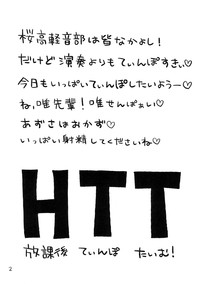 桜高軽音部は皆なかよし!
だけど演奏よりもてぃんぽすき、♡
今日もいっぱいてぃんぽしたいようー♡
ね、唯先輩!唯せんぱぁい♡
あずさはおかず♡
いっぱい射精してくださいね♡
HTT
放課後 てぃんぽ たいむ!
2